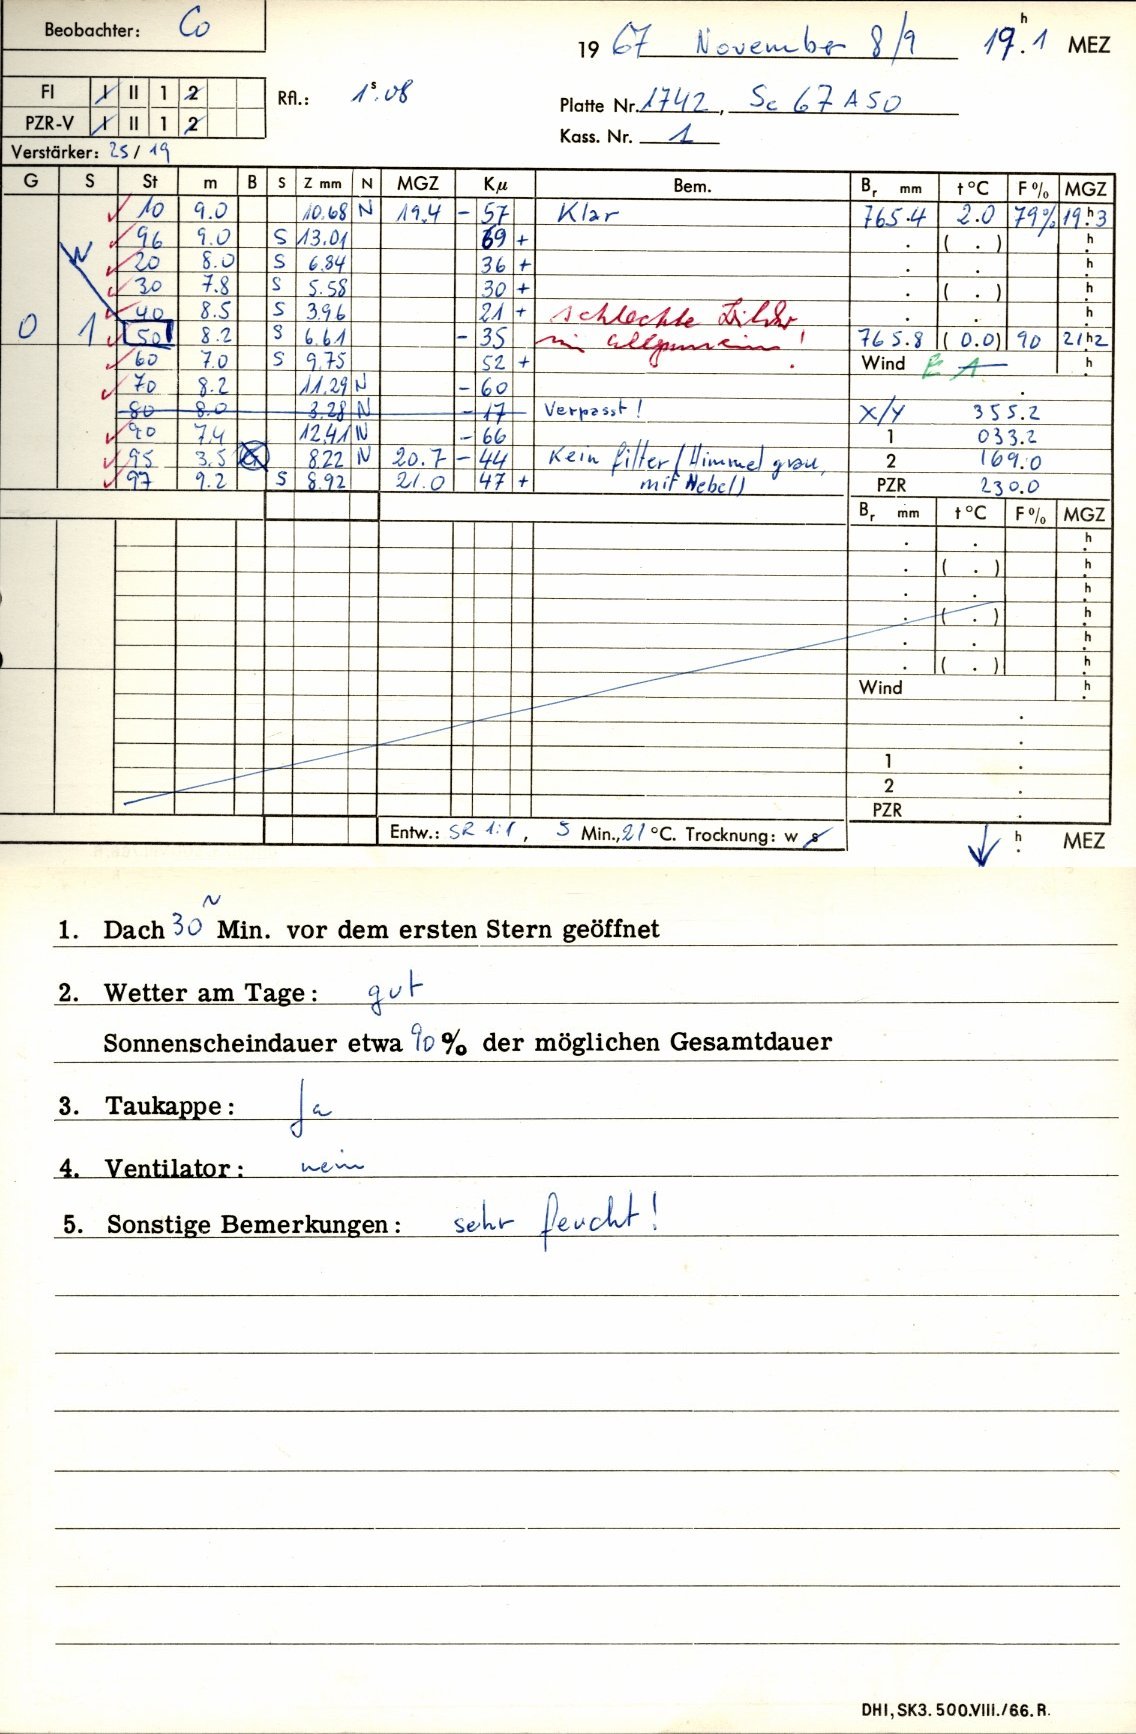 Beobachter: Co
19 67 November 8/9 19h.1 MEZ
FI I II 1 2
PZR-V I II 1 2
Rfl.: 1s.08
Platte Nr. 1742, Sc 67 A 50
Kass. Nr. 1
Verstärker: 25/19
G S St m B S Z mm N MGZ Kμ Bem. Br mm t°C F% MGZ
10 9.0 10.68 N 19.4 - 57 Klar 765.4 2.0 79% 19h3
96 9.0 S 13.01 69 + . ( . ) h
W 20 8.0 S 6.84 36 + . . h
30 7.8 S 5.58 30 + . ( . ) h
40 8.5 S 3.96 21 + schlechte Bilder . . h
0 1 50 8.2 S 6.61 - 35 im allgemeinen! 765.8 ( 0.0) 90 21h2
60 7.0 S 9.75 52 + Wind E A h
70 8.2 11.29 N - 60 .
80 8.0 3.28 N - 17 Verpasst! X/Y 355.2
90 7.4 12.41 N - 66 1 033.2
95 3.5 8.22 N 20.7 - 44 Kein filter (Himmel grau, 2 169.0
97 9.2 S 8.92 21.0 47 + mit Nebel) PZR 230.0
Br mm t°C F% MGZ
. . h
. ( . ) h
. . h
. ( . ) h
. . h
. ( . ) h
Wind h
.
.
1 .
2 .
PZR .
Entw.: SR 1:1, 5 Min., 21 °C. Trocknung: w s
h MEZ
1. Dach 30 ~ Min. vor dem ersten Stern geöffnet
2. Wetter am Tage: gut
Sonnenscheindauer etwa 90 % der möglichen Gesamtdauer
3. Taukappe: Ja
4. Ventilator: nein
5. Sonstige Bemerkungen: sehr feucht!
DHI, SK3. 500.VIII./66. R.